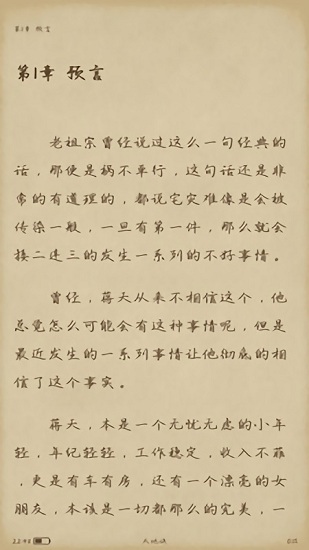 第1章 预言
第1章 预言
老祖宗曾经说过这么一句经典的
话，那便是祸不单行，这句话还是非
常的有道理的，都说灾难像是会被
传染一般，一旦有第一件，那么就会
接二连三的发生一系列的不好事情。
曾经，蒋天从来不相信这个，他
总觉怎么可能会有这种事情呢，但是
最近发生的一系列事情让他彻底的相
信了这个事实。
蒋天，本是一个无忧无虑的小年
轻，年纪轻轻，工作稳定，收入不菲
，更是有车有房，还有一个漂亮的女
朋友，本该是一切都那么的完美，一